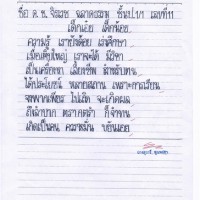 ชื่อ ด.ช. จิรเวช ฉลาดธรรม ชั้นป.1/1 เลขที่11
เด็กเอ๋ย เด็กน้อย
ความรู้ เรายังด้อย เร่งศึกษา
เมื่อเติบใหญ่ เราจะได้ มีวิชา
เป็นเครื่องหา เลี้ยงชีพ สำหรับตน
ได้ประโยชน์ หลายสถาน เพราะการเรียน
จงพากเพียร ไปเถิด จะเกิดผล
ถึงลำบาก ตรากตรำ ก็จำทน
เกิดเป็นคน ควรหมั่น ขยันเอย